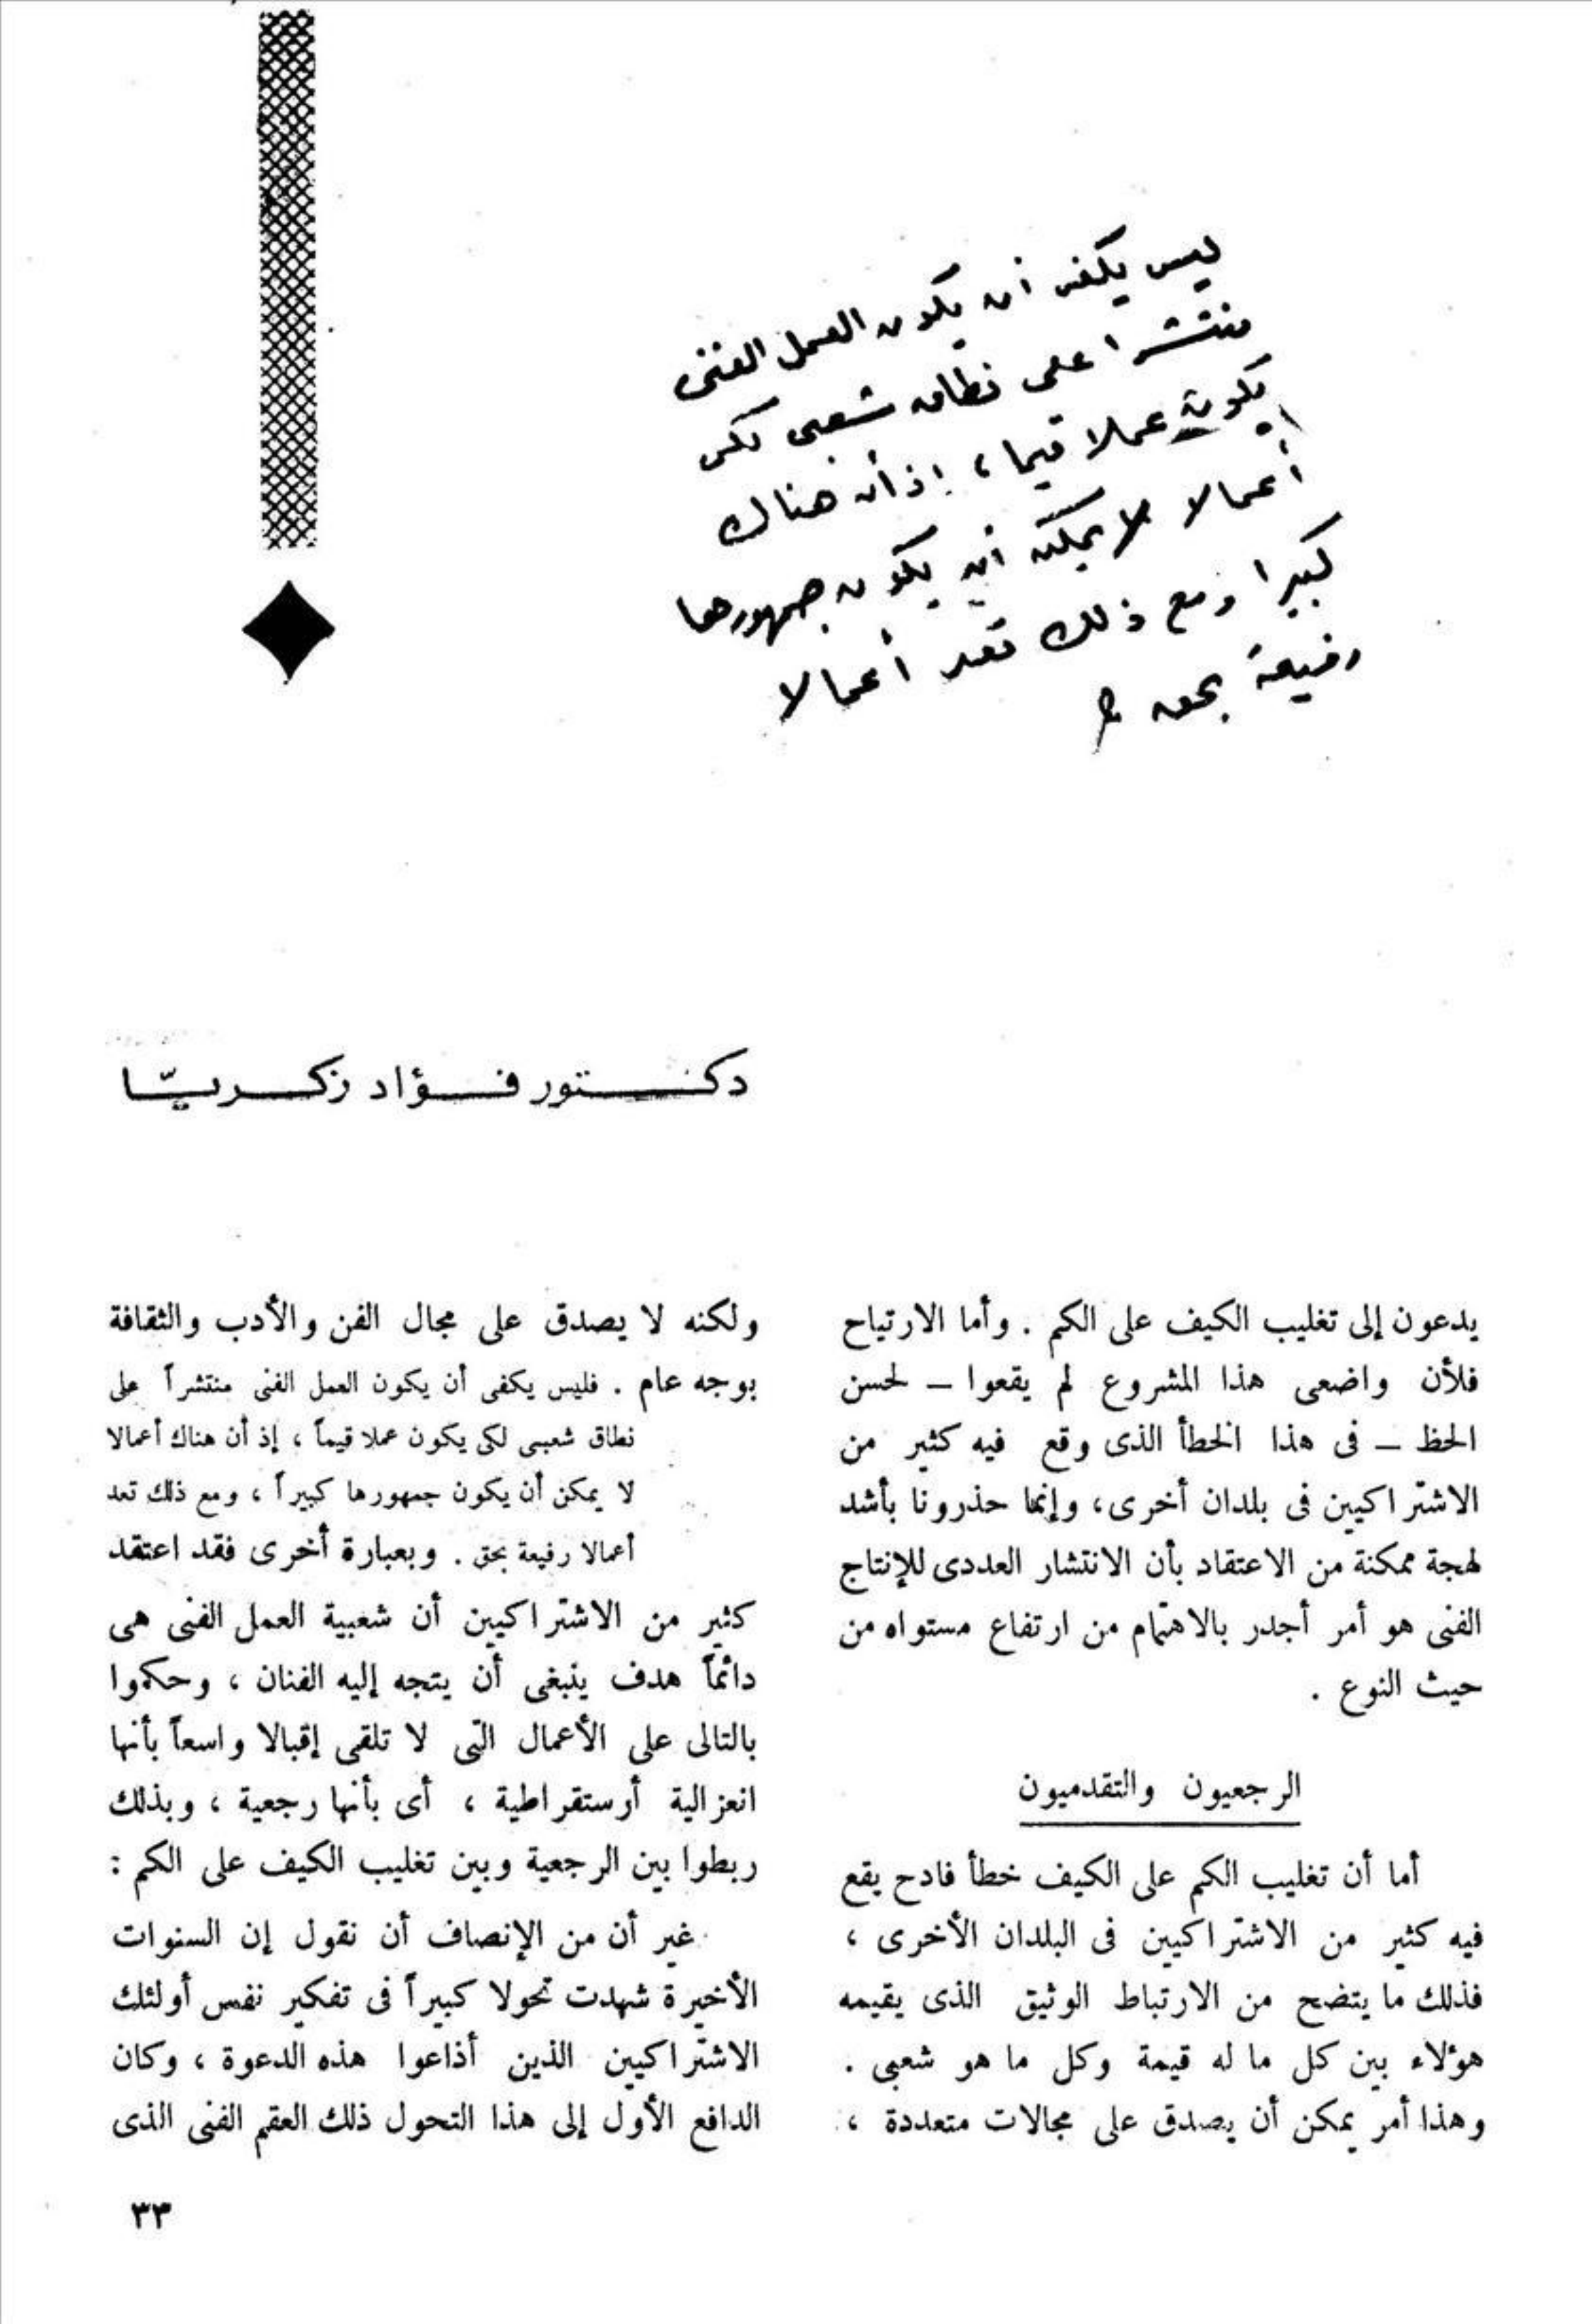 ليس يكفى أن يكون العمل الفنى
منتشرا على نطاق شعبى لكى
يكون عملا قيما ، إذ أن هناك
أعمالا لا يمكن أن يكون جمهورها
كبيرا ومع ذلك تعد أعمالا
رفيعة بحق
دكتور فؤاد زكريّا
يدعون إلى تغليب الكيف على الكم . وأما الارتياح
فلأن واضعى هذا المشروع لم يقعوا – لحسن
الحظ – فى هذا الخطأ الذى وقع فيه كثير من
الاشتراكيين فى بلدان أخرى، وإنما حذرونا بأشد
لهجة ممكنة من الاعتقاد بأن الانتشار العددى للإنتاج
الفنى هو أمر أجدر بالاهتمام من ارتفاع مستواه من
حيث النوع .
الرجعيون والتقدميون
أما أن تغليب الكم على الكيف خطأ فادح يقع
فيه كثير من الاشتراكيين فى البلدان الأخرى ،
فذلك ما يتضح من الارتباط الوثيق الذى يقيمه
هؤلاء بين كل ما له قيمة وكل ما هو شعبى .
وهذا أمر يمكن أن يصدق على مجالات متعددة ،
ولكنه لا يصدق على مجال الفن والأدب والثقافة
بوجه عام . فليس يكفى أن يكون العمل الفنى منتشراً على
نطاق شعبى لكى يكون عملا قيماً ، إذ أن هناك أعمالا
لا يمكن أن يكون جمهورها كبيراً ، ومع ذلك تعد
أعمالا رفيعة بحق . وبعبارة أخرى فقد اعتقد
كثير من الاشتراكيين أن شعبية العمل الفنى هى
دائماً هدف ينبغى أن يتجه إليه الفنان ، وحكموا
بالتالى على الأعمال التى لا تلقى إقبالا واسعاً بأنها
انعزالية أرستقراطية ، أى بأنها رجعية ، وبذلك
ربطوا بين الرجعية وبين تغليب الكيف على الكم :
غير أن من الإنصاف أن نقول إن السنوات
الأخيرة شهدت تحولا كبيراً فى تفكير نفس أولئك
الاشتراكيين الذين أذاعوا هذه الدعوة ، وكان
الدافع الأول إلى هذا التحول ذلك العقم الفنى الذى
٣٣